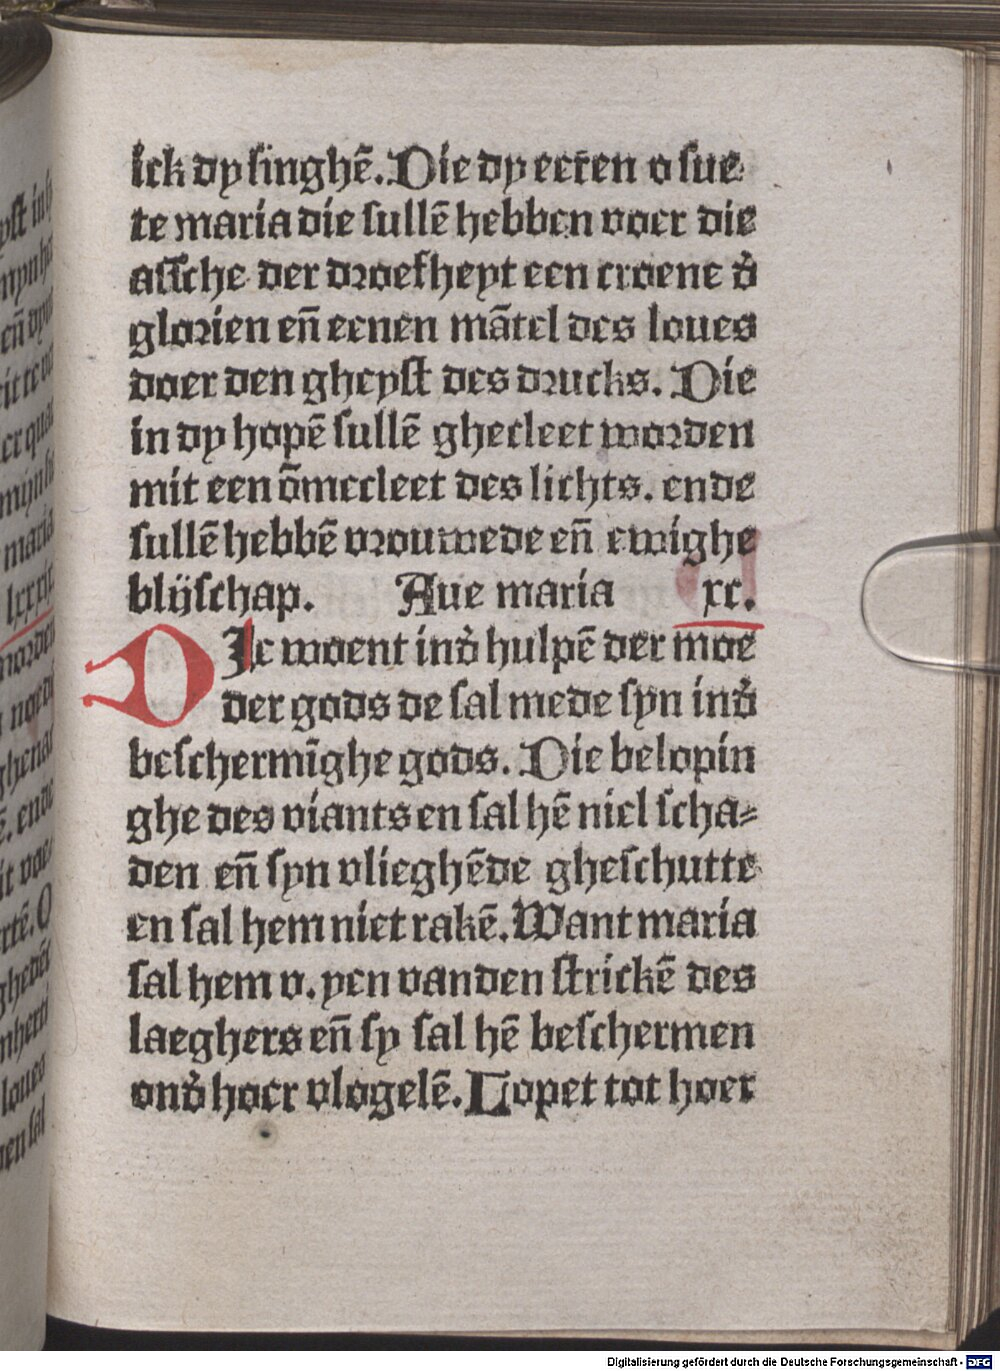 ick dy singhē. Die dy eeren o sue
te maria die sullē hebben voer die
assche der droefheyt een croene d̄
glorien eñ eenen mātel des loues
doer den gheyst des drucks. Die
in dy hopē sullē ghecleet worden
mit een ōmecleet des lichts. ende
sullē hebbē vrouwede eñ ewighe
blijschap. Aue maria xc.
DIe woent ind̄ hulpē der moe
der gods de sal mede syn ind̄
beschermīghe gods. Die belopin
ghe des viants en sal hē niel scha⸗
den eñ syn vlieghēde gheschutte
en sal hem niet rakē. Want maria
sal hem v. yen vanden strickē des
laeghers eñ sy sal hē beschermen
ond̄ hoer vlogelē. Lopet tot hoer
Digitalisierung gefördert durch die Deutsche Forschungsgemeinschaft - DFG